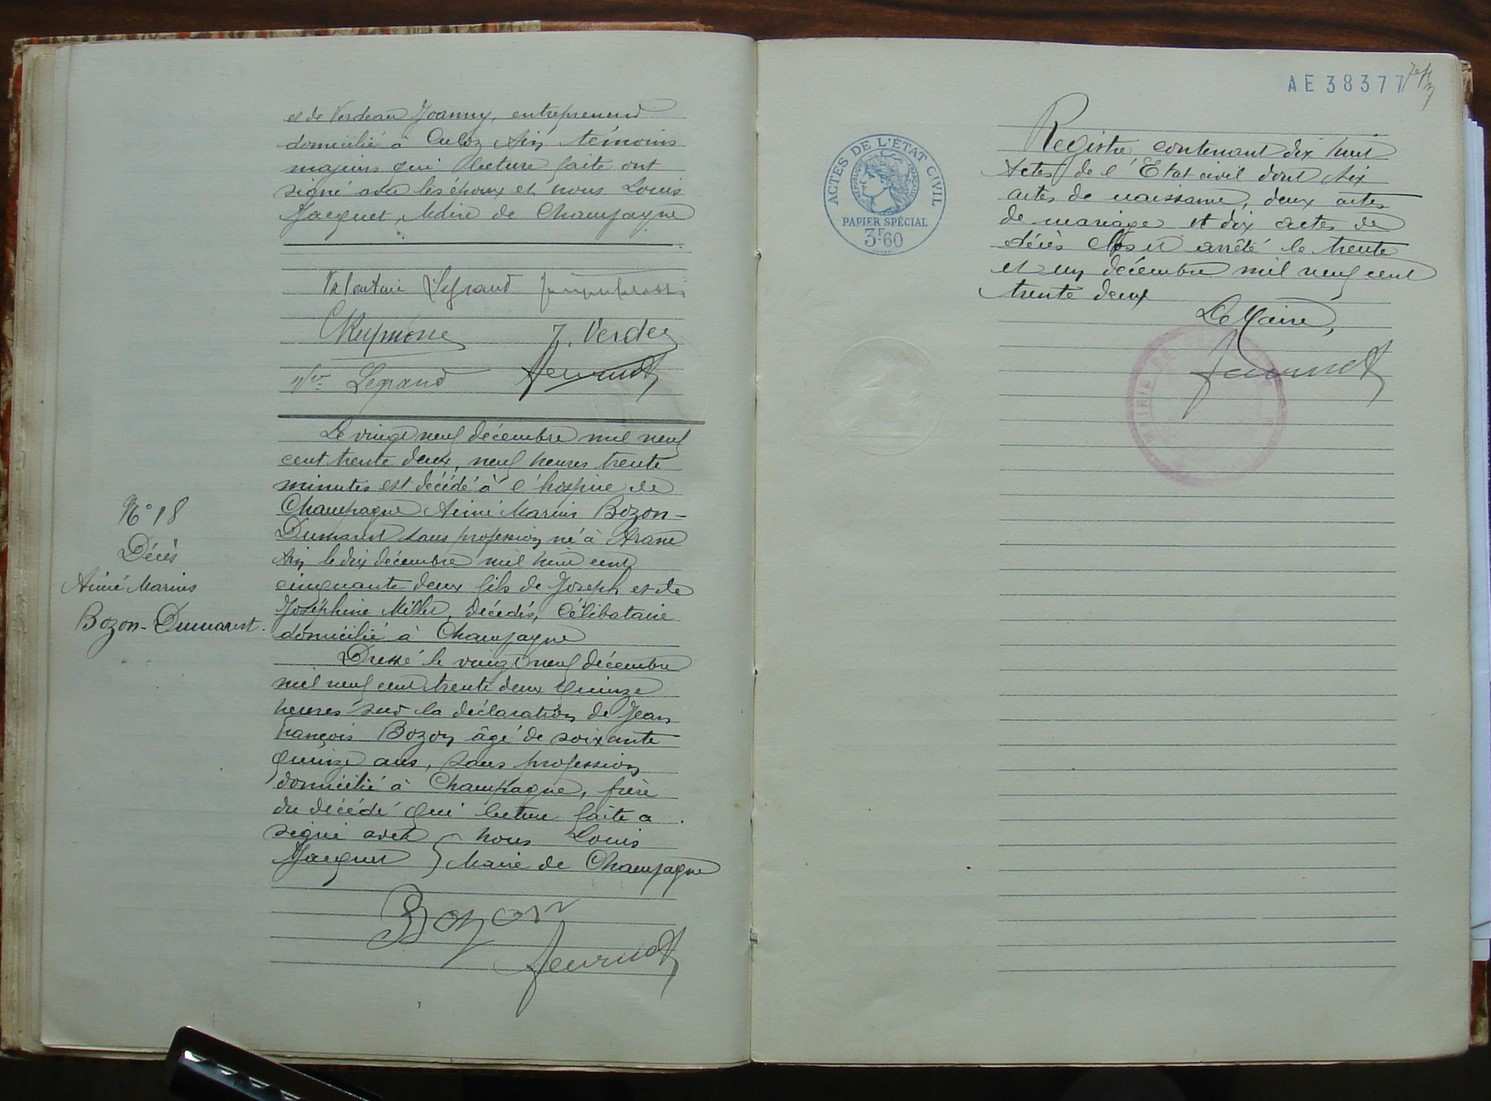 et de Verdeau Joanny, entrepreneur
domicilié à Culoz Ain, témoins
majeurs qui lecture faite ont
signé avec les époux et nous Louis
Jacquet, Maire de Champagne
Legrand
CRaymond J. Verdeau
Legrand
Le vingt neuf décembre mil neuf
cent trente deux, neuf heures trente
minutes est décédé à l'hospice de
Champagne Aimé Marius Bozon-
Dumarest sans profession né à Arane
Ain le dix décembre mil huit cent
cinquante deux fils de Joseph et de
Joséphine Millet, décédés, Célibataire
domicilié à Champagne
N° 18
Décès
Aimé Marius
Bozon-Dumarest.
Dressé le vingt neuf décembre
mil neuf cent trente deux quinze
heures sur la déclaration de Jean
François Bozon âgé de soixante
quinze ans, sans profession
domicilié à Champagne, frère
du décédé qui lecture faite a
signé avec nous Louis
Jacquet Maire de Champagne
Bozon
AE 38377
ACTES DE L'ÉTAT CIVIL
PAPIER SPÉCIAL
3F.60
Registre contenant dix huit
Actes de l'Etat civil dont six
actes de naissance, deux actes
de mariage et dix actes de
décès Clos et arrêté le trente
et un décembre mil neuf cent
trente deux
Le Maire,